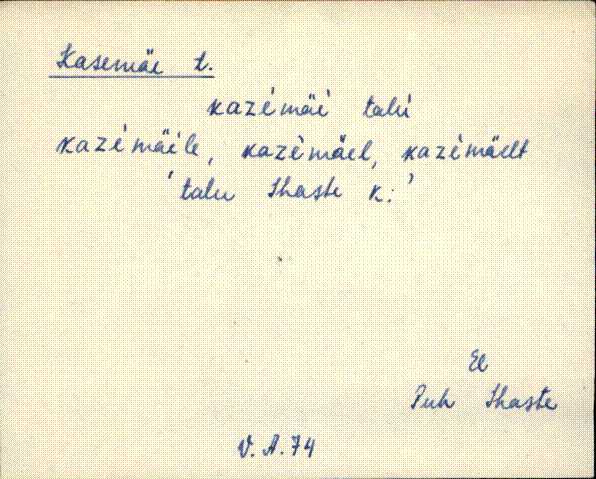 Kasemäe t.
kazèmäè talù
kazèmäèle, kazèmäel, kazèmäelt
'talu Ihaste k.'
El
Puh Ihaste
V. A. 74